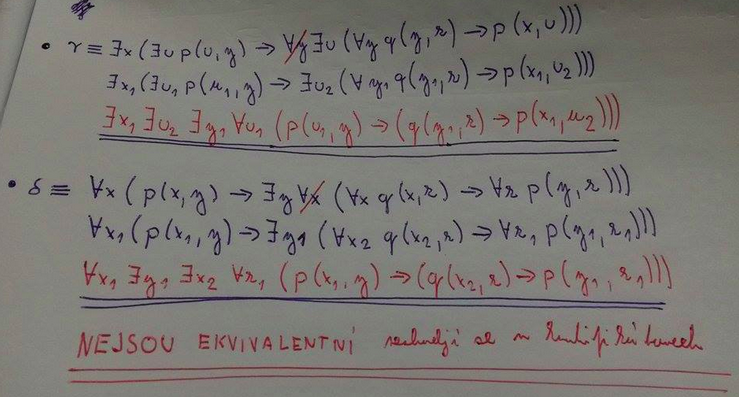 • γ ≡ ∃x (∃υ p(υ, y) → ∀y ∃υ (∀y q(y, r) → p(x, υ)))
∃x₁ (∃υ₁ p(u₁, y) → ∃υ₂ (∀y₁ q(y₁, r) → p(x₁, υ₂)))
∃x₁ ∃υ₂ ∃y₁ ∀υ₁ (p(υ₁, y) → (q(y₁, r) → p(x₁, u₂)))
• δ ≡ ∀x (p(x, y) → ∃y ∀x (∀x q(x, r) → ∀r p(y, r)))
∀x₁ (p(x₁, y) → ∃y₁ (∀x₂ q(x₂, r) → ∀r₁ p(y₁, r₁)))
∀x₁ ∃y₁ ∃x₂ ∀r₁ (p(x₁, y) → (q(x₂, r) → p(y₁, r₁)))
NEJSOU EKVIVALENTNÍ se